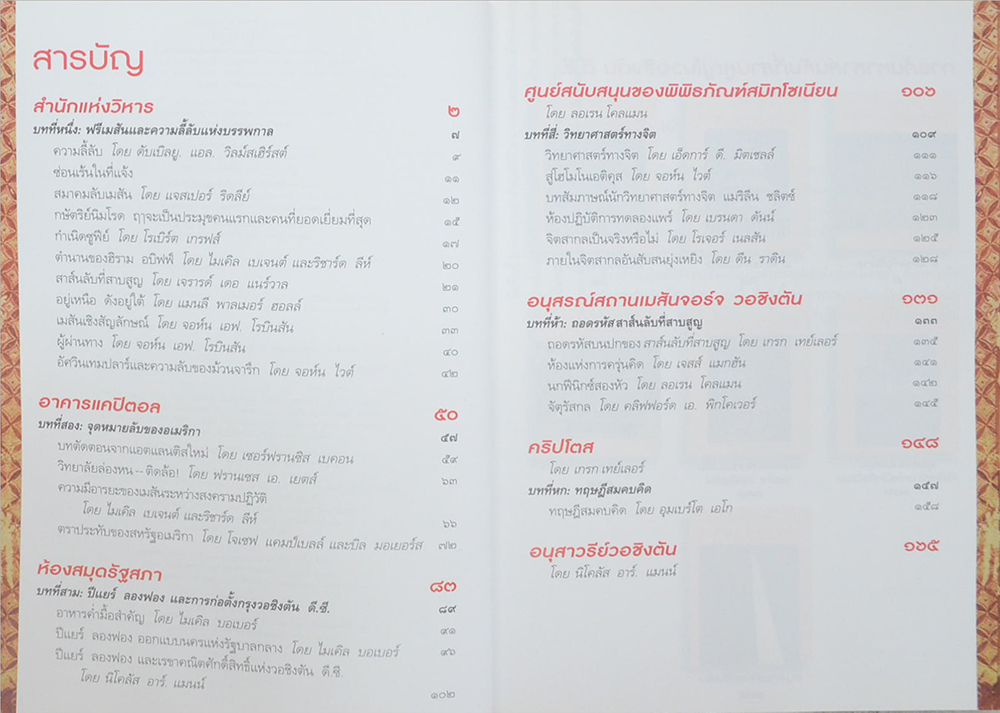 สารบัญ
สำนักแห่งวิหาร ๒
บทที่หนึ่ง: ฟรีเมสันและความลี้ลับแห่งบรรพกาล ๗
ความลี้ลับ โดย ดับเบิลยู. แอล. วิลม์สเฮิร์สต์ ๙
ซ่อนเร้นในที่แจ้ง ๑๑
สมาคมลับเมสัน โดย แจสเปอร์ ริดลีย์ ๑๒
กษัตริย์นิมโรด ฤๅจะเป็นประมุขคนแรกและคนที่ยอดเยี่ยมที่สุด ๑๕
กำเนิดซูฟีย์ โดย โรเบิร์ต เกรฟส์ ๑๗
ตำนานของฮิราม อบิฟฟ์ โดย ไมเคิล เบเจนต์ และริชาร์ด ลีห์ ๒๐
สาส์นลับที่สาบสูญ โดย เจราร์ด เดอ แนร์วาล ๒๑
อยู่เหนือ ดังอยู่ใต้ โดย แมนลี พาลเมอร์ ฮอลล์ ๓๐
เมสันเชิงสัญลักษณ์ โดย จอห์น เอฟ. โรบินสัน ๓๓
ผู้ผ่านทาง โดย จอห์น เอฟ. โรบินสัน ๔๐
อัศวินเทมปลาร์และความลับของม้วนจารึก โดย จอห์น ไวต์ ๔๒
อาคารแคปิตอล ๕๐
บทที่สอง: จุดหมายลับของอเมริกา ๕๗
บทตัดตอนจากแอตแลนติสใหม่ โดย เซอร์ฟรานซิส เบคอน ๕๙
วิทยาลัยล่องหน -- ติดล้อ! โดย ฟรานเซส เอ. เยตส์ ๖๓
ความมีอารยะของเมสันระหว่างสงครามปฏิวัติ
โดย ไมเคิล เบเจนต์ และริชาร์ด ลีห์ ๖๖
ตราประทับของสหรัฐอเมริกา โดย โจเซฟ แคมป์เบลล์ และบิล มอเยอร์ส ๗๒
ห้องสมุดรัฐสภา ๘๓
บทที่สาม: ปีแยร์ ลองฟอง และการก่อตั้งกรุงวอชิงตัน ดี.ซี. ๘๙
อาหารค่ำมื้อสำคัญ โดย ไมเคิล บอเบอร์ ๙๑
ปีแยร์ ลองฟอง ออกแบบนครแห่งรัฐบาลกลาง โดย ไมเคิล บอเบอร์ ๙๖
ปีแยร์ ลองฟอง และเรขาคณิตศักดิ์สิทธิ์แห่งวอชิงตัน ดี.ซี.
โดย นิโคลัส อาร์. แมนน์ ๑๐๒
ศูนย์สนับสนุนของพิพิธภัณฑ์สมิทโซเนียน ๑๐๖
โดย ลอเรน โคลแมน
บทที่สี่: วิทยาศาสตร์ทางจิต ๑๐๙
วิทยาศาสตร์ทางจิต โดย เอ็ดการ์ ดี. มิตเชลล์ ๑๑๑
สู่โฮโมโนเอติคุส โดย จอห์น ไวต์ ๑๑๖
บทสัมภาษณ์นักวิทยาศาสตร์ทางจิต แมริลีน ชลิตซ์ ๑๑๘
ห้องปฏิบัติการทดลองแพร์ โดย เบรนดา ดันน์ ๑๒๓
จิตสากลเป็นจริงหรือไม่ โดย โรเจอร์ เนลสัน ๑๒๕
ภายในจิตสากลอันสับสนยุ่งเหยิง โดย ดีน ราดิน ๑๒๘
อนุสรณ์สถานเมสันจอร์จ วอชิงตัน ๑๓๑
บทที่ห้า: ถอดรหัสสาส์นลับที่สาบสูญ ๑๓๓
ถอดรหัสบนปกของสาส์นลับที่สาบสูญ โดย เกรก เทย์เลอร์ ๑๓๕
ห้องแห่งการครุ่นคิด โดย เจสส์ แมกฮัน ๑๔๑
นกฟีนิกซ์สองหัว โดย ลอเรน โคลแมน ๑๔๒
จัตุรัสกล โดย คลิฟฟอร์ด เอ. พิกโคเวอร์ ๑๔๕
คริปโตส ๑๔๘
โดย เกรก เทย์เลอร์
บทที่หก: ทฤษฎีสมคบคิด ๑๕๗
ทฤษฎีสมคบคิด โดย อุมเบร์โต เอโก ๑๕๘
อนุสาวรีย์วอชิงตัน ๑๖๕
โดย นิโคลัส อาร์. แมนน์